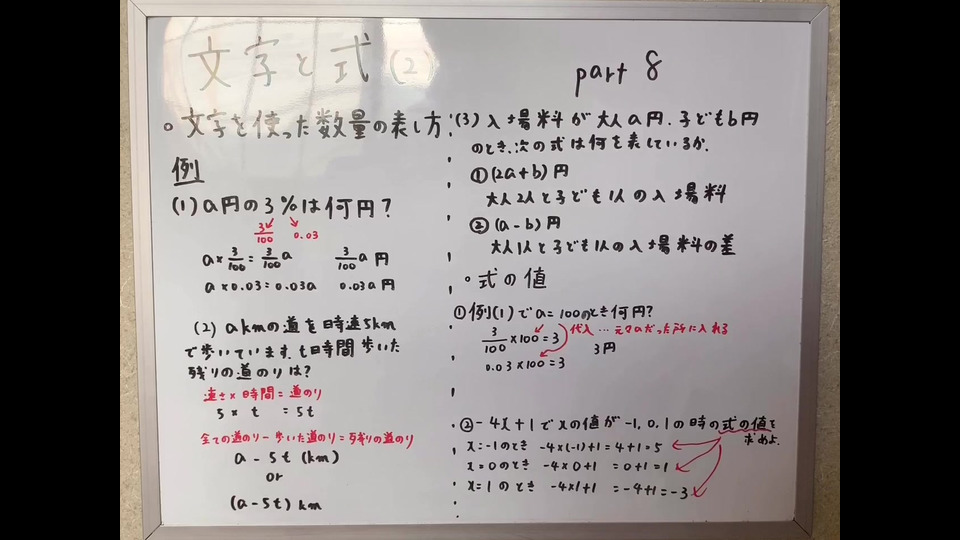 文字と式(2)
part 8
。文字を使った数量の表し方
例
(1) a円の3%は何円?
3/100 0.03
a×3/100=3/100a 3/100a円
a×0.03=0.03a 0.03a円
(2) akmの道を時速5km
で歩いています。t時間歩いた
残りの道のりは?
速さ×時間=道のり
5 × t = 5t
全ての道のり-歩いた道のり=残りの道のり
a-5t (km)
or
(a-5t)km
(3) 入場料が大人a円、子どもb円
のとき、次の式は何を表しているか.
①(2a+b)円
大人2人と子ども1人の入場料
②(a-b)円
大人1人と子ども1人の入場料の差
。式の値
①例(1)でa=100のとき何円?
3/100×100=3 代入…元々aだった所に入れる
0.03×100=3 3円
②-4x+1でxの値が-1,0,1の時の式の値を
求めよ.
x=-1のとき -4×(-1)+1=4+1=5
x=0のとき -4×0+1 =0+1=1
x=1のとき -4×1+1 =-4+1=-3